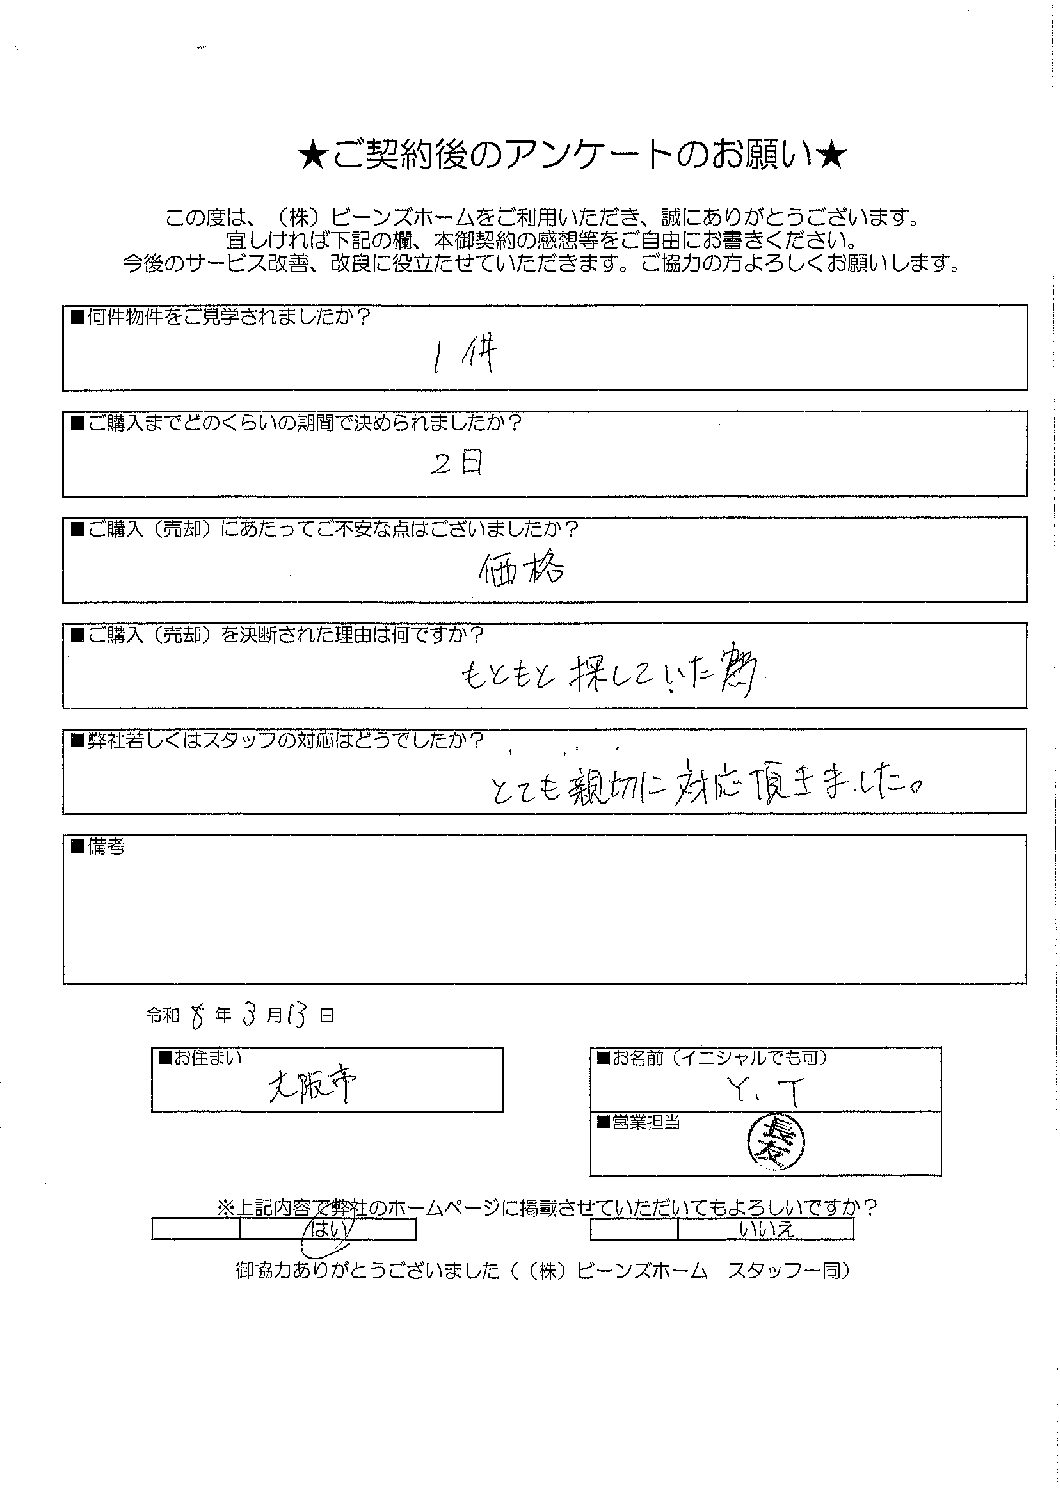 ★ご契約後のアンケートのお願い★
この度は、（株）ビーンズホームをご利用いただき、誠にありがとうございます。
宜しければ下記の欄、本御契約の感想等をご自由にお書きください。
今後のサービス改善、改良に役立たせていただきます。ご協力の方よろしくお願いします。
■何件物件をご見学されましたか？
1件
■ご購入までどのくらいの期間で決められましたか？
2日
■ご購入（売却）にあたってご不安な点はございましたか？
価格
■ご購入（売却）を決断された理由は何ですか？
もともと探していた為
■弊社若しくはスタッフの対応はどうでしたか？
とても親切に対応頂きました。
■備考
令和8年3月13日
■お住まい
大阪市
■お名前（イニシャルでも可）
Y.T
■営業担当
長友
※上記内容で弊社のホームページに掲載させていただいてもよろしいですか？
はい いいえ
御協力ありがとうございました（（株）ビーンズホーム　スタッフ一同）